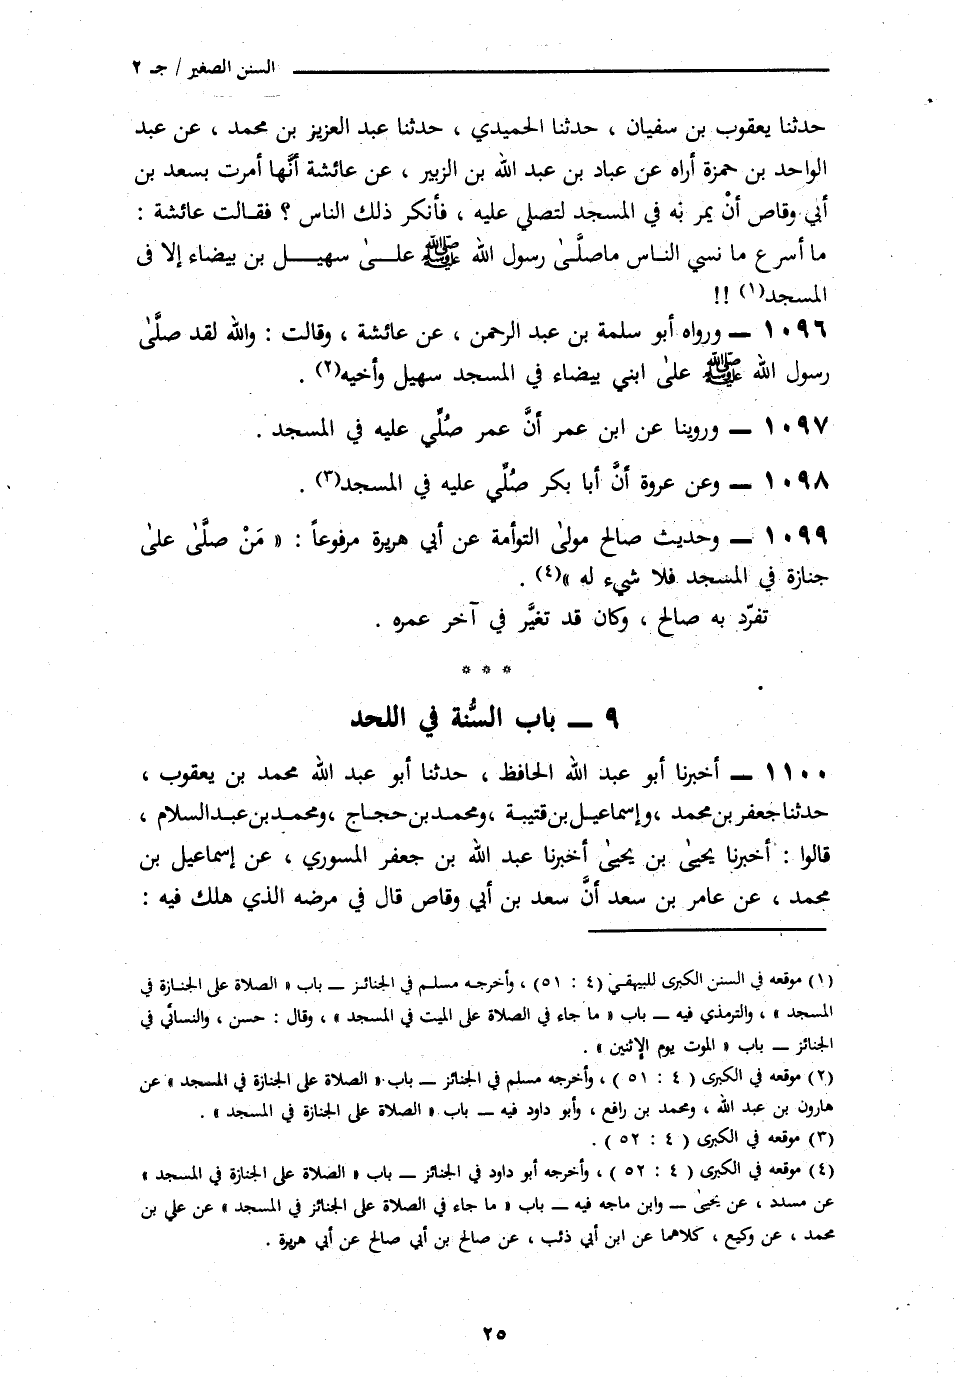 السنن الصغير / جـ ٢
حدثنا يعقوب بن سفيان ، حدثنا الحميدي ، حدثنا عبد العزيز بن محمد ، عن عبد
الواحد بن حمزة أراه عن عباد بن عبد الله بن الزبير ، عن عائشة أنَّها أمرت بسعد بن
أبي وقاص أنْ يمر به في المسجد لتصلي عليه ، فأنكر ذلك الناس ؟ فقالت عائشة :
ما أسرع ما نسي الناس ماصلَّىٰ رسول الله ﷺ علىٰ سهيل بن بيضاء إلا فى
المسجد(١) !!
١٠٩٦ ــ ورواه أبو سلمة بن عبد الرحمن ، عن عائشة ، وقالت : والله لقد صلَّىٰ
رسول الله ﷺ علىٰ ابني بيضاء في المسجد سهيل وأخيه(٢) .
١٠٩٧ ــ وروينا عن ابن عمر أنَّ عمر صُلِّي عليه في المسجد .
١٠٩٨ ــ وعن عروة أنَّ أبا بكر صُلِّي عليه في المسجد(٣) .
١٠٩٩ ــ وحديث صالح مولىٰ التوأمة عن أبي هريرة مرفوعاً : « مَنْ صلَّىٰ علىٰ
جنازة في المسجد فلا شيء له »(٤) .
تفرّد به صالح ، وكان قد تغيَّر في آخر عمره .
* * *
٩ ــ باب السُّنة في اللحد
١١٠٠ ــ أخبرنا أبو عبد الله الحافظ ، حدثنا أبو عبد الله محمد بن يعقوب ،
حدثنا جعفر بن محمد ، وإسماعيل بن قتيبة ، ومحمد بن حجاج ، ومحمد بن عبد السلام ،
قالوا : أخبرنا يحيىٰ بن يحيىٰ أخبرنا عبد الله بن جعفر المسوري ، عن إسماعيل بن
محمد ، عن عامر بن سعد أنَّ سعد بن أبي وقاص قال في مرضه الذي هلك فيه :
(١) موقعه في السنن الكبرى للبيهقي (٤ : ٥١) ، وأخرجه مسلم في الجنائز ــ باب « الصلاة على الجنازة في
المسجد » ، والترمذي فيه ــ باب « ما جاء في الصلاة على الميت في المسجد » ، وقال : حسن ، والنسائي في
الجنائز ــ باب « الموت يوم الإثنين » .
(٢) موقعه في الكبرى ( ٤ : ٥١ ) ، وأخرجه مسلم في الجنائز ــ باب « الصلاة على الجنازة في المسجد » عن
هارون بن عبد الله ، ومحمد بن رافع ، وأبو داود فيه ــ باب « الصلاة على الجنازة في المسجد » .
(٣) موقعه في الكبرى ( ٤ : ٥٢ ) .
(٤) موقعه في الكبرى ( ٤ : ٥٢ ) ، وأخرجه أبو داود في الجنائز ــ باب « الصلاة على الجنازة في المسجد »
عن مسدد ، عن يحيىٰ ــ وابن ماجه فيه ــ باب « ما جاء في الصلاة علىٰ الجنائز في المسجد » عن علي بن
محمد ، عن وكيع ، كلاهما عن ابن أبي ذئب ، عن صالح بن أبي صالح عن أبي هريرة .
٢٥